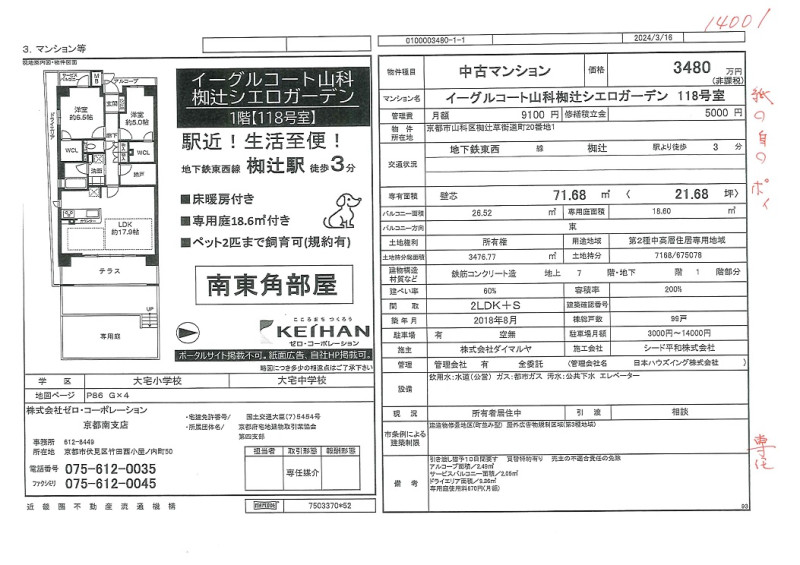 14001
3. マンション等
現地案内図・物件図面
0100003480-1-1
2024/3/16
サービスバルコニー
MB
アルコーブ
洋室
約6.5帖
玄関
洋室
約5.0帖
ドライエリア
廊下
WCL
洗面
WCL
納戸
LDK
約17.9帖
テラス
UP
専用庭
イーグルコート山科
椥辻シエロガーデン
1階【118号室】
駅近!生活至便!
地下鉄東西線 椥辻駅 徒歩3分
■床暖房付き
■専用庭18.6㎡付き
■ペット2匹まで飼育可(規約有)
南東角部屋
こころおち つくろう
KEIHAN
ゼロ・コーポレーション
ポータルサイト掲載不可。紙面広告、自社HP掲載可。
略図につき多少の相違点はご了承下さい
学区 大宅小学校 大宅中学校
地図ページ P86 G×4
株式会社ゼロ・コーポレーション
京都南支店
事務所 612-8449
所在地 京都市伏見区竹田西小屋ノ内町50
電話番号 075-612-0035
ファクシミリ 075-612-0045
・宅建免許番号/ 国土交通大臣(7)5454号
・所属団体名/ 京都府宅地建物取引業協会
第四支部
担当者 取引形態 報酬形態
専任媒介
近畿圏不動産流通機構
7503370*52
物件種目 中古マンション 価格 3480 万円
(非課税)
マンション名 イーグルコート山科椥辻シエロガーデン 118号室
管理費 月額 9100 円 修繕積立金 5000 円
物件所在地 京都市山科区椥辻草海道町20番地1
交通状況 地下鉄東西 線 椥辻 駅より徒歩 3 分
専有面積 壁芯 71.68 ㎡ 〈 21.68 坪〉
バルコニー面積 26.52 ㎡ 専用庭面積 18.60 ㎡
バルコニー方向 東
土地権利 所有権 用途地域 第2種中高層住居専用地域
土地持分総面積 3476.77 ㎡ 土地持分 7168/675078
建物構造材質など 鉄筋コンクリート造 地上 7 階・地下 階 1 階部分
建ぺい率 60% 容積率 200%
間取 2LDK+S 建築確認番号
築年月 2018年8月 棟総戸数 99戸
駐車場 有 空無 駐車場月額 3000円~14000円
施主 株式会社ダイマルヤ 施工会社 シード平和株式会社
管理 管理会社 有 全委託 (管理会社名 日本ハウズイング株式会社 )
設備 飲用水:水道(公営) ガス:都市ガス 汚水:公共下水 エレベーター
現況 所有者居住中 引渡 相談
市条例による建築制限 建造物修景地区(町並み型) 屋外広告物規制区域(第3種地域)
備考 引き渡し猶予10日間要す 買替特約有り 売主の不適合責任の免除
アルコーブ面積/2.49㎡
サービスバルコニー面積/2.06㎡
専用庭使用料670円(月額)
93
専任